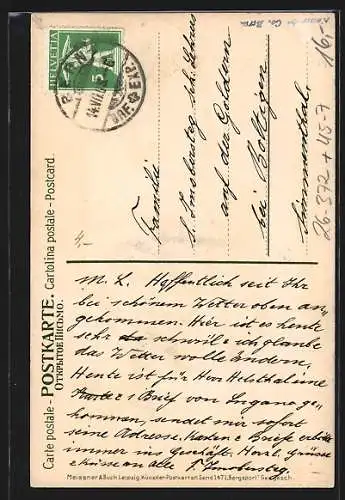 Kanton Bern
16,-
HELVETIA
5
BERN
14.VII.
BRF. EXP.
Familie
S. Imobersteg bei Lehrers
auf der Goldern
bei Boltigen
Simmenthal.
26-372 + 45-7
4.-
Carte postale - POSTKARTE. Cartolina postale - Postcard.
ОТКРЫТОЕ ПИСЬМО.
M. L. Hoffentlich seit Ihr
bei schönem Wetter oben an-
gekommen. Hier ist es heute
sehr schwül & ich glaube
das Wetter wolle ändern.
Heute ist für Herr eine
Karte & 1 Brief von Lugano ge-
kommen, sendet mir sofort
seine Adresse. Karten & Briefe erbitte
immer ins Geschäft. Herzl. Grüsse
& Küsse an alle S. Imobersteg.
Meissner & Buch Leipzig. Künstler-Postkarten Serie 1471 "Bergsport" Ges. gesch.